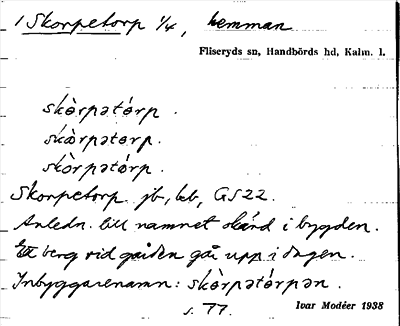 1 Skorpetorp 1/4, hemman
Fliseryds sn, Handbörds hd, Kalm. l.
skòrpətórp.
skòrpətorp.
skòrpətórp.
Skorpetorp jb, kb, GS22.
Anledn. till namnet okänd i bygden.
Ett berg vid gården går upp i dagen.
Inbyggarenamn: skòrpətórpən.
s. 77.
Ivar Modéer 1938